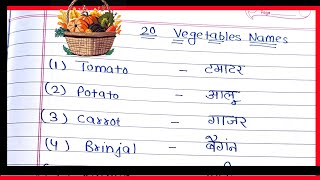 20 Vegetables Names
(1) Tomato - टमाटर
(2) Potato - आलू
(3) Carrot - गाजर
(4) Brinjal - बैगंन